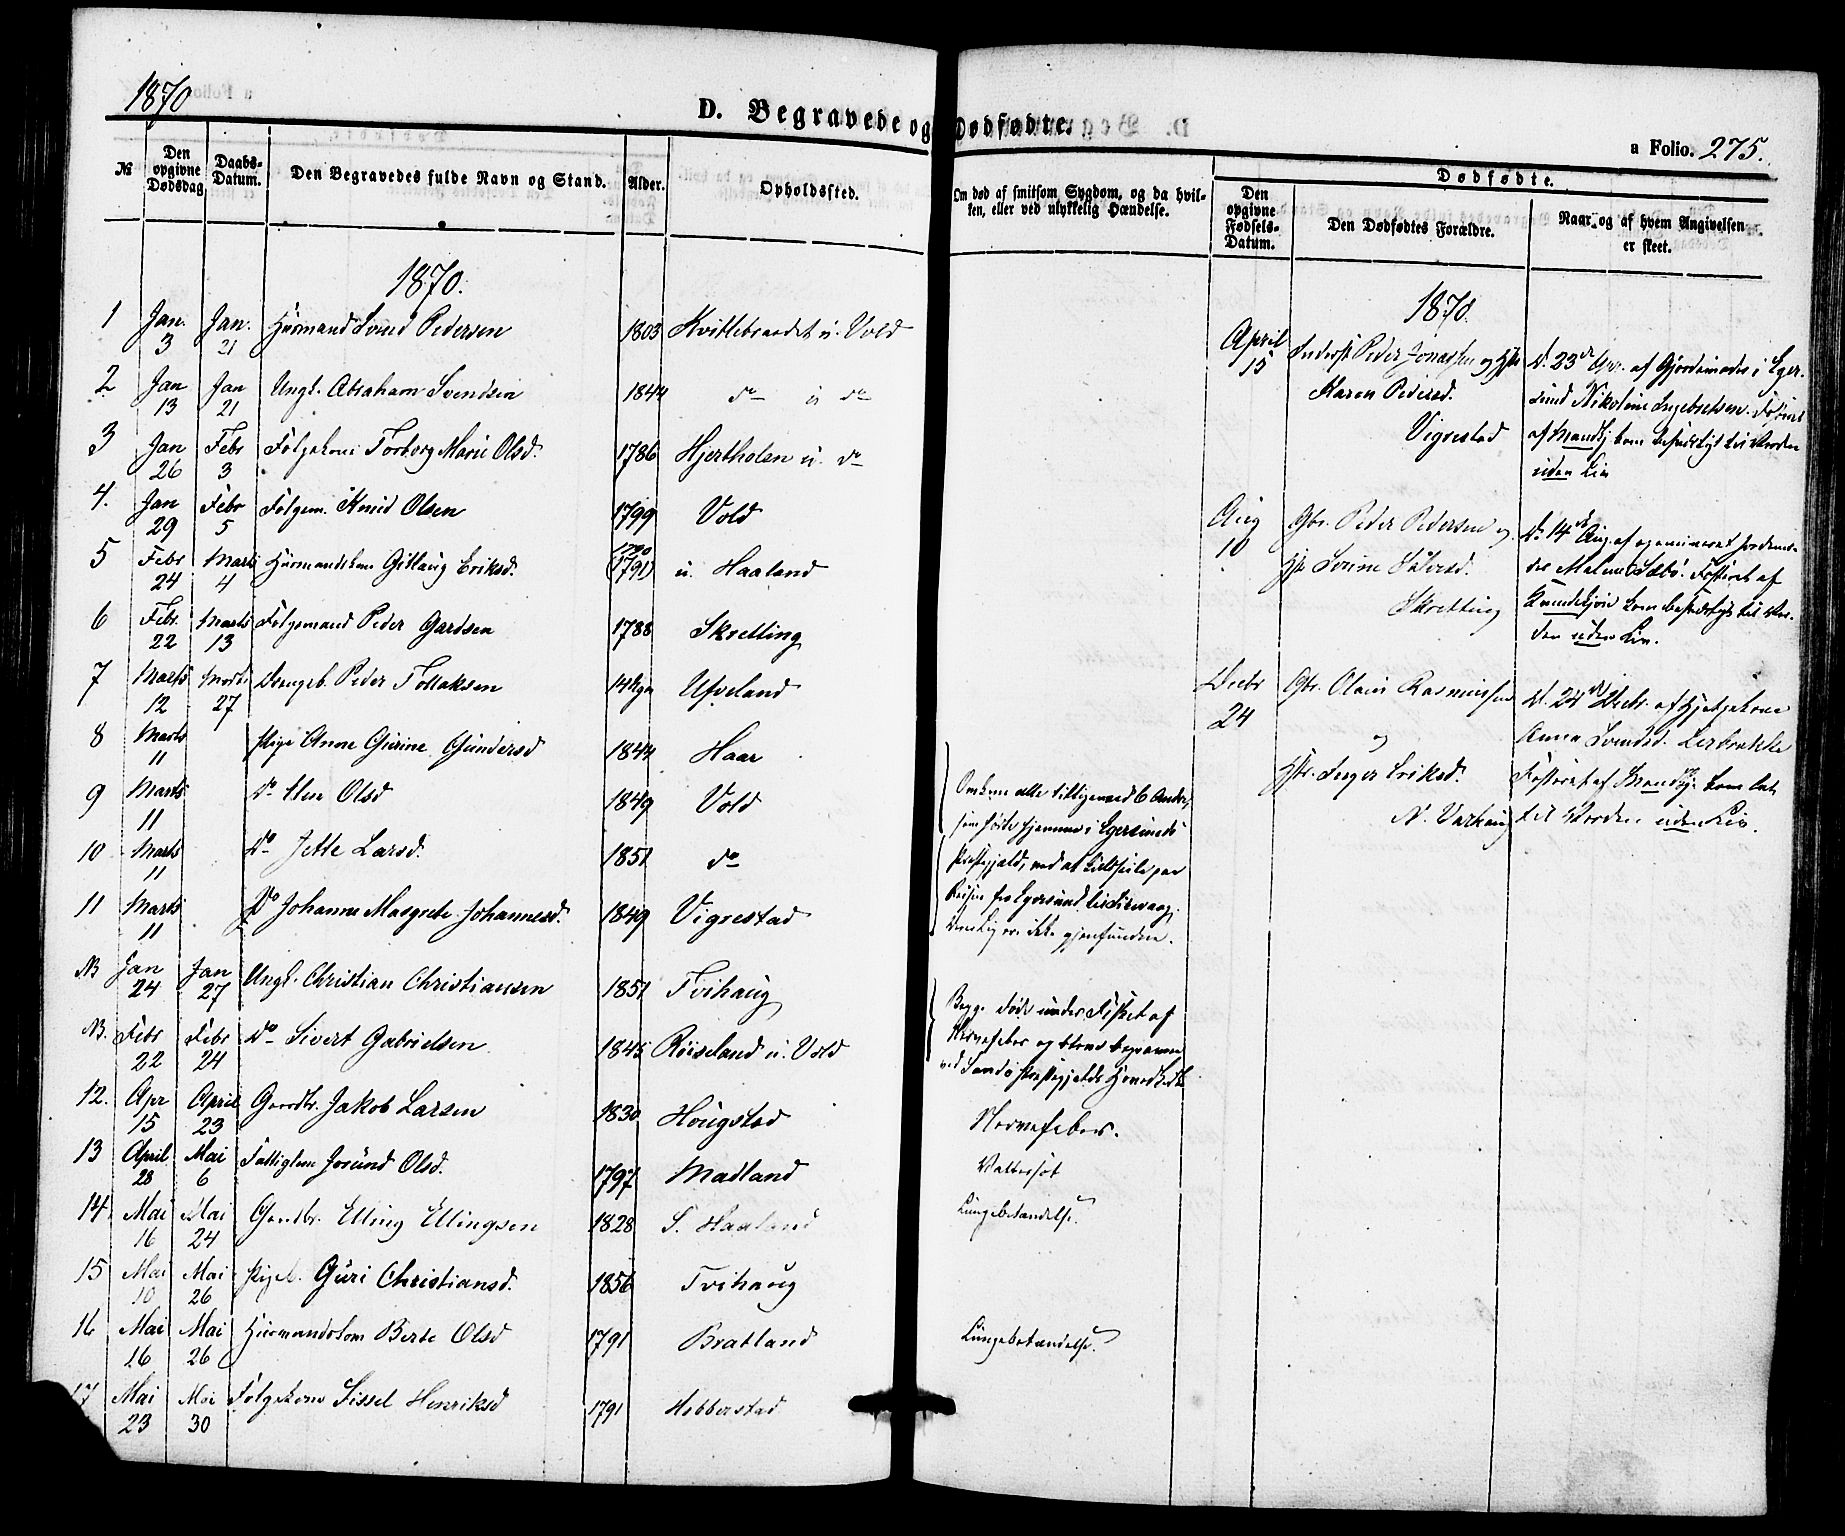 1870
D. Begravede og Dødfødte.
a Folio. 275.
№
Den opgivne Dødsdag
Daabs-Datum.
Den Begravedes fulde Navn og Stand.
Alder.
Opholdssted.
Om død af smitsom Sygdom, og da hvil-
ken, eller ved ulykkelig Hændelse.
Dødfødte.
Den opgivne Fødsels-Datum.
Den Dødfødtes Forældre.
Naar og af hvem Angivelsen
er skeet.
1870.
1 Jan. 3 Jan. 21 Huusmand Svend Pedersen 1803 u. Vold
2 Jan 13 Jan 21 Ungk. Abraham Svendsen 1844 do u do
3 Jan 26 Febr 3 Følgekone Torborg Marie Olsd. 1786 Hjertholen u. do
4. Jan 29 Febr 5 Følgem. Knud Olsen 1799 Vold
5 Febr 24 Marts 4 Huusmandskone Gitlaug Eriksd. 1790 (1791) u. Haaland
6 Febr. 22 Marts 13 Følgemand Peder Gardsen 1788 Skretting
7 Marts 12 Marts 27 Drengeb. Peder Tollaksen Ueland
8 Marts 11 Pige Anne Gurine Gundersd 1844 Haar
9 Marts 11 Do Olsd 1849 Vold
10 Marts 11 Do Jette Larsd. 1851 do
11 Marts 11 Do Johanne Margrete Johannesd. 1849 Vigrestad
NB Jan 24 Jan 27 Ungk. Christian Christiansen 1851 Tvihaug
NB. Febr 22 Febr 24 Do Sivert Gabrielsen 1845 Røiseland u. Vold
12. Apr 15 April 23 Gaardbr. Jakob Larsen 1830 Hougstad
13 April 28 Mai 6 Fattiglem Jorund Olsd. 1797 Madland
14. Mai 16 Mai 24 Gaardbr. Elling Ellingsen 1828 S. Haaland
15 Mai 10 Mai 26 Pigeb. Guri Christiansd. 1856 Tvihaug
16 Mai 16 Mai 26 Huusmandskone Berte Olsd 1791 Bratland
17 Mai 23 Mai 30 Følgekone Sissel Henriksd 1791 Hobberstad
Omkom alle tilligemed 6 Andre,
som hørte hjemme i Egersunds
Præstegjæld, ved at
Reisen fra Egersund til Sirevaag.
Deres Lig ere ikke gjenfundne.
Begge døde under Fisket af
Nervefeber og bleve begravne
ved Sandø Præstegjelds Hovedkirke
Nervefeber.
Vattersot
Lungebetændelse.
Lungebetændelse.
1870.
April 15
Inderst Peder Jonassen og Hst
Karen Pedersd.
Vigrestad
D. 23de Apr. af Gjordemoder i Eger-
sund Nikoline Ingebretsen. Fosteret
af Mandkj kom til Verden
uden Liv
Aug 10
Gbr. Peder Pedersen og
Hst Serine Sølvesd.
Skretting
D. 14de Aug. af examineret Jordemo-
der Malene Sæbø. Fosteret af
Kvindekjøn kom til Ver-
den uden Liv.
Decbr 24
Gbr. Olaus Rasmussen
og
Hst. Inger Eriksd.
N. Varhaug
D. 24de Decbr. af Hjelpekone
Anna Svendsd. Lerbrække
Fosteret af Mandkj. kom
til Verden uden Liv.